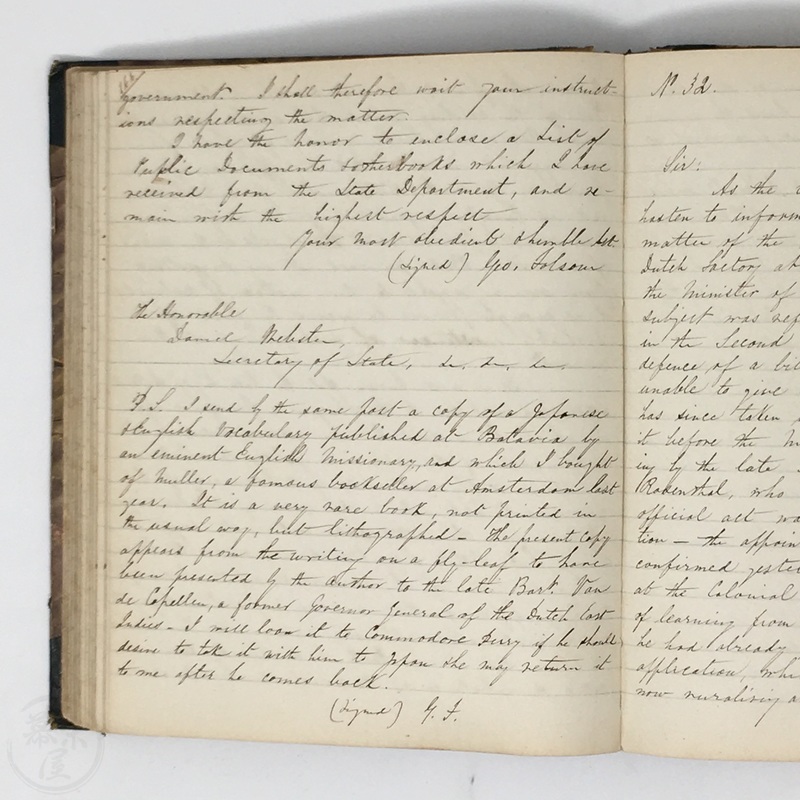 government. I shall therefore wait your instruct-
ions respecting the matter.
I have the honor to enclose a List of
Public Documents & other books which I have
received from the State Department, and re-
main with the highest respect
Your most obedient & humble Svt.
(Signed) Geo. Folsom
The Honorable
Daniel Webster,
Secretary of State, &c. &c. &c.
P.S. I send by the same post a copy of a Japanese
& English Vocabulary published at Batavia by
an eminent English Missionary, and which I bought
of Muller, a famous bookseller at Amsterdam last
year. It is a very rare book, not printed in
the usual way, but lithographed – The present copy
appears from the writing on a fly-leaf to have
been presented by the author to the late Bart. Van
de Capellen, a former Governor General of the Dutch East
Indies – I will loan it to Commodore Perry if he should
desire to take it with him to Japan & he may return it
to me after he comes back.
(Signed) G. F.
No. 32.
Sir:
As the
hasten to inform
matter of the
Dutch factory at
the Minister of
subject was ref
in the Second
defence of a bil
unable to give
has since taken
it before the
ing by the late
Rosenthal, who
official act wa
tion – the appoin
confirmed yester
at the Colonial
of learning from
he had already
application, whi
now ruralising